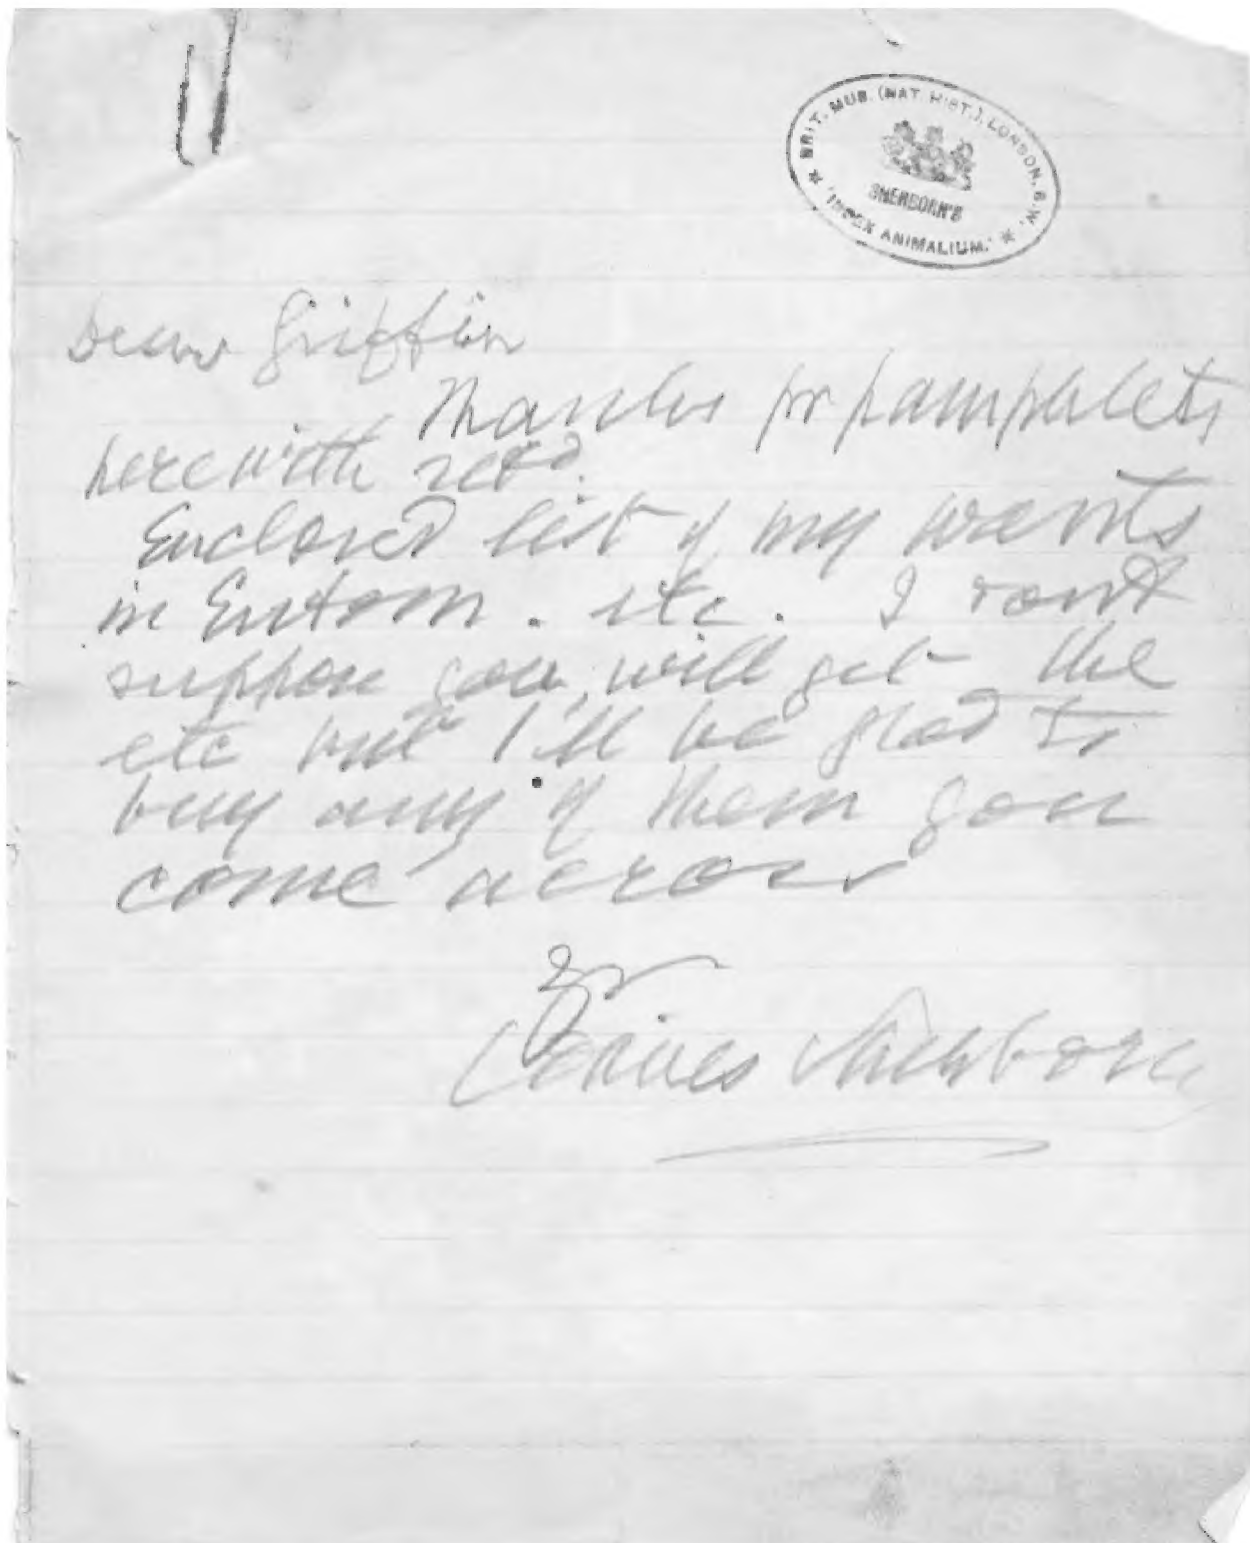 BRIT. MUS. (NAT. HIST.), LONDON, S.W.
SHERBORN'S
'INDEX ANIMALIUM.'
Dear Griffin
Thanks for pamphlets
herewith retd.
Enclosed list of my wants
in Entom. etc. I don't
suppose you will get the
etc but I'll be glad to
buy any of them you
come across
Yr
Davies Sherborn